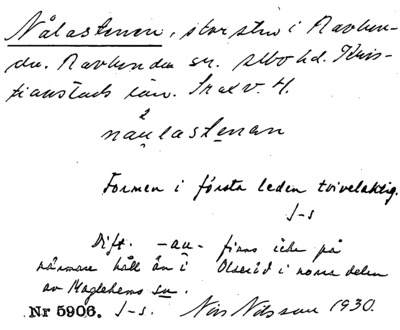 Nålastenen, stor sten i Ravlun-
da. Ravlunda sn. Albo hd. Kris-
tianstads län. Skåne. 4.
2
nau̯lastenan
Formen i första leden tvivelaktig.
I-s
Dift. -au- finns icke på
närmare håll än i Olseröd i norra delen
av Maglehems sn.
Nr 5906. I-s. Nils Nilsson 1930.